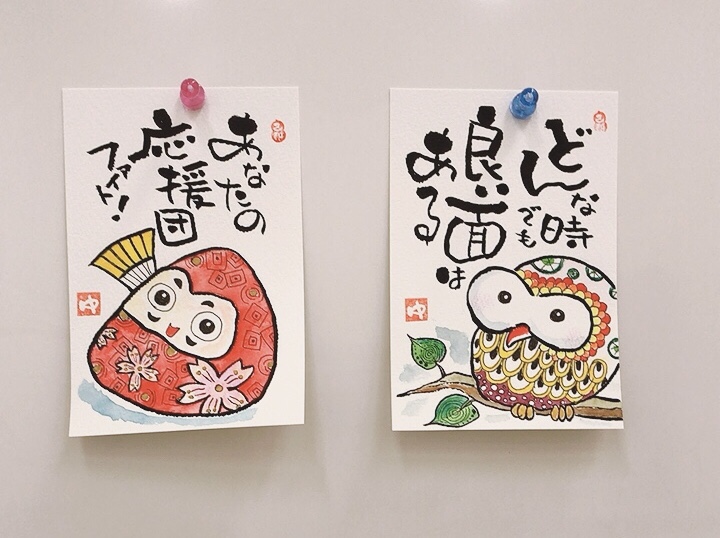 あなたの
応援団
ファイト!
どんな時
でも
良い面は
ある